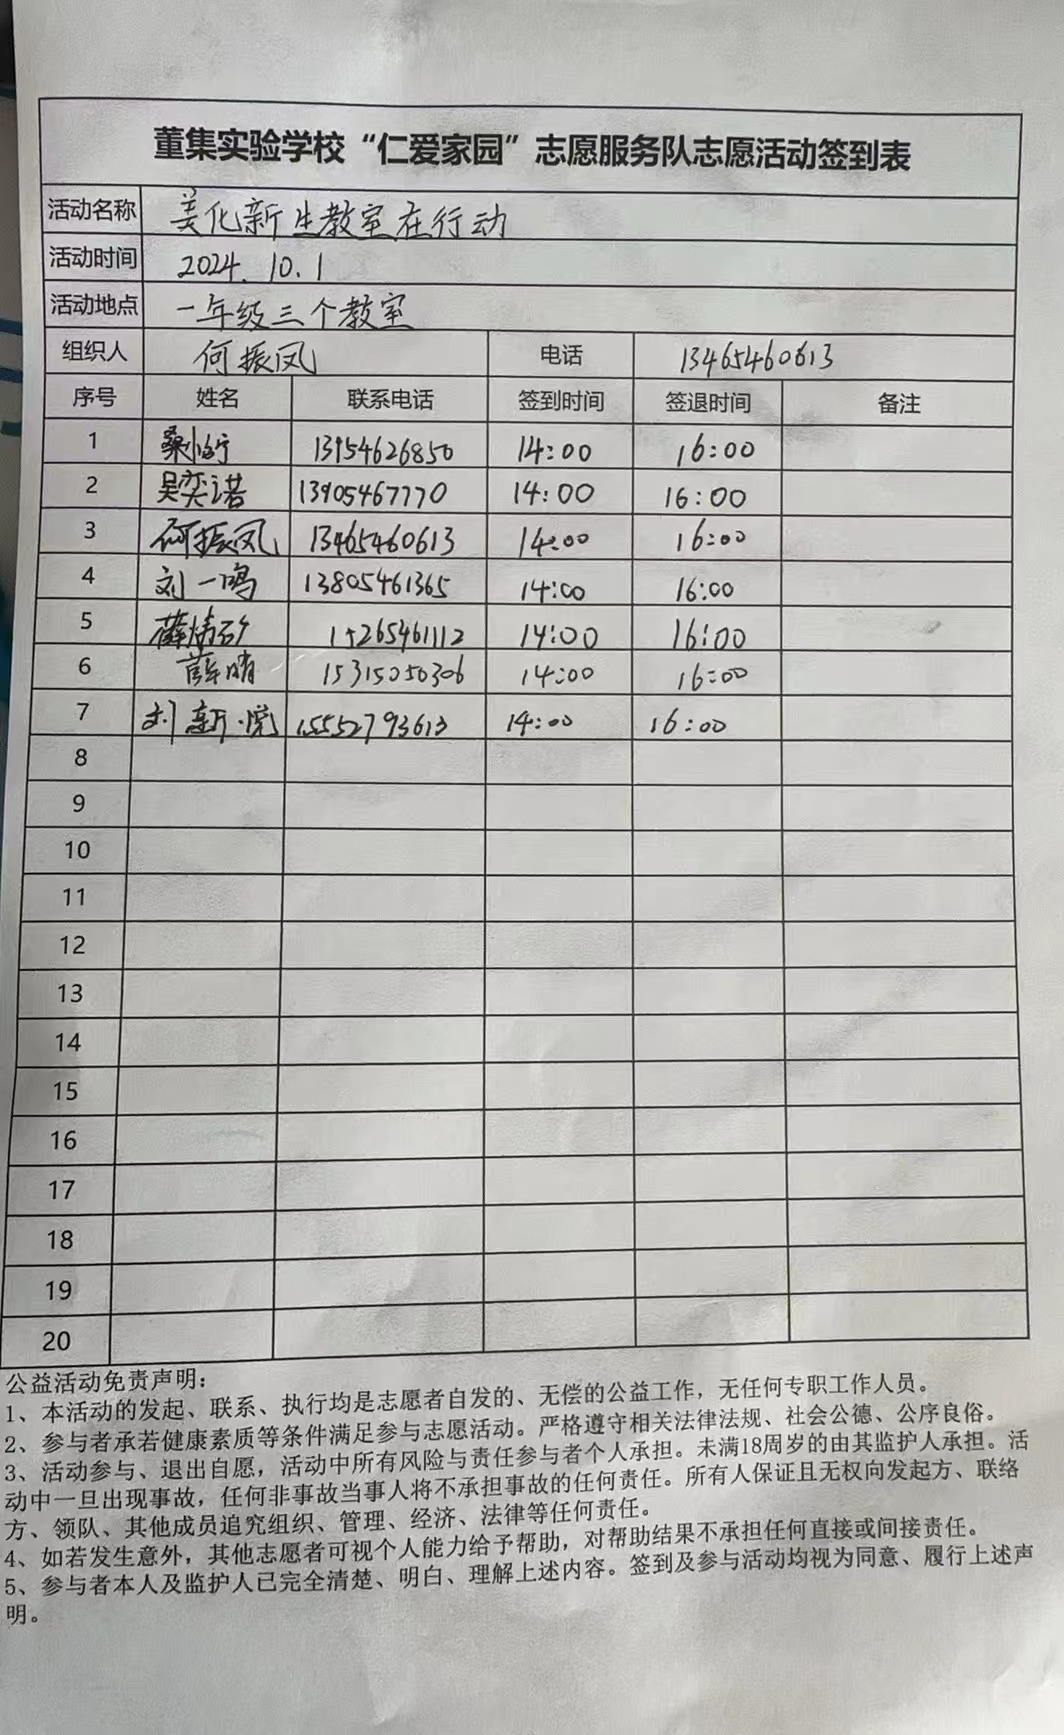 董集实验学校“仁爱家园”志愿服务队志愿活动签到表
活动名称 美化新生教室在行动
活动时间 2024.10.1
活动地点 一年级三个教室
组织人 何振凤 电话 13465460613
序号 姓名 联系电话 签到时间 签退时间 备注
1 13954626850 14:00 16:00
2 吴奕诺 13905467770 14:00 16:00
3 何振凤 13465460613 14:00 16:00
4 刘一鸣 13805461365 14:00 16:00
5 15265461112 14:00 16:00
6 薛晴 15315050306 14:00 16:00
7 刘新悦 15552793613 14:00 16:00
8
9
10
11
12
13
14
15
16
17
18
19
20
公益活动免责声明：
1、本活动的发起、联系、执行均是志愿者自发的、无偿的公益工作，无任何专职工作人员。
2、参与者承若健康素质等条件满足参与志愿活动。严格遵守相关法律法规、社会公德、公序良俗。
3、活动参与、退出自愿，活动中所有风险与责任参与者个人承担。未满18周岁的由其监护人承担。活
动中一旦出现事故，任何非事故当事人将不承担事故的任何责任。所有人保证且无权向发起方、联络
方、领队、其他成员追究组织、管理、经济、法律等任何责任。
4、如若发生意外，其他志愿者可视个人能力给予帮助，对帮助结果不承担任何直接或间接责任。
5、参与者本人及监护人已完全清楚、明白、理解上述内容。签到及参与活动均视为同意、履行上述声
明。